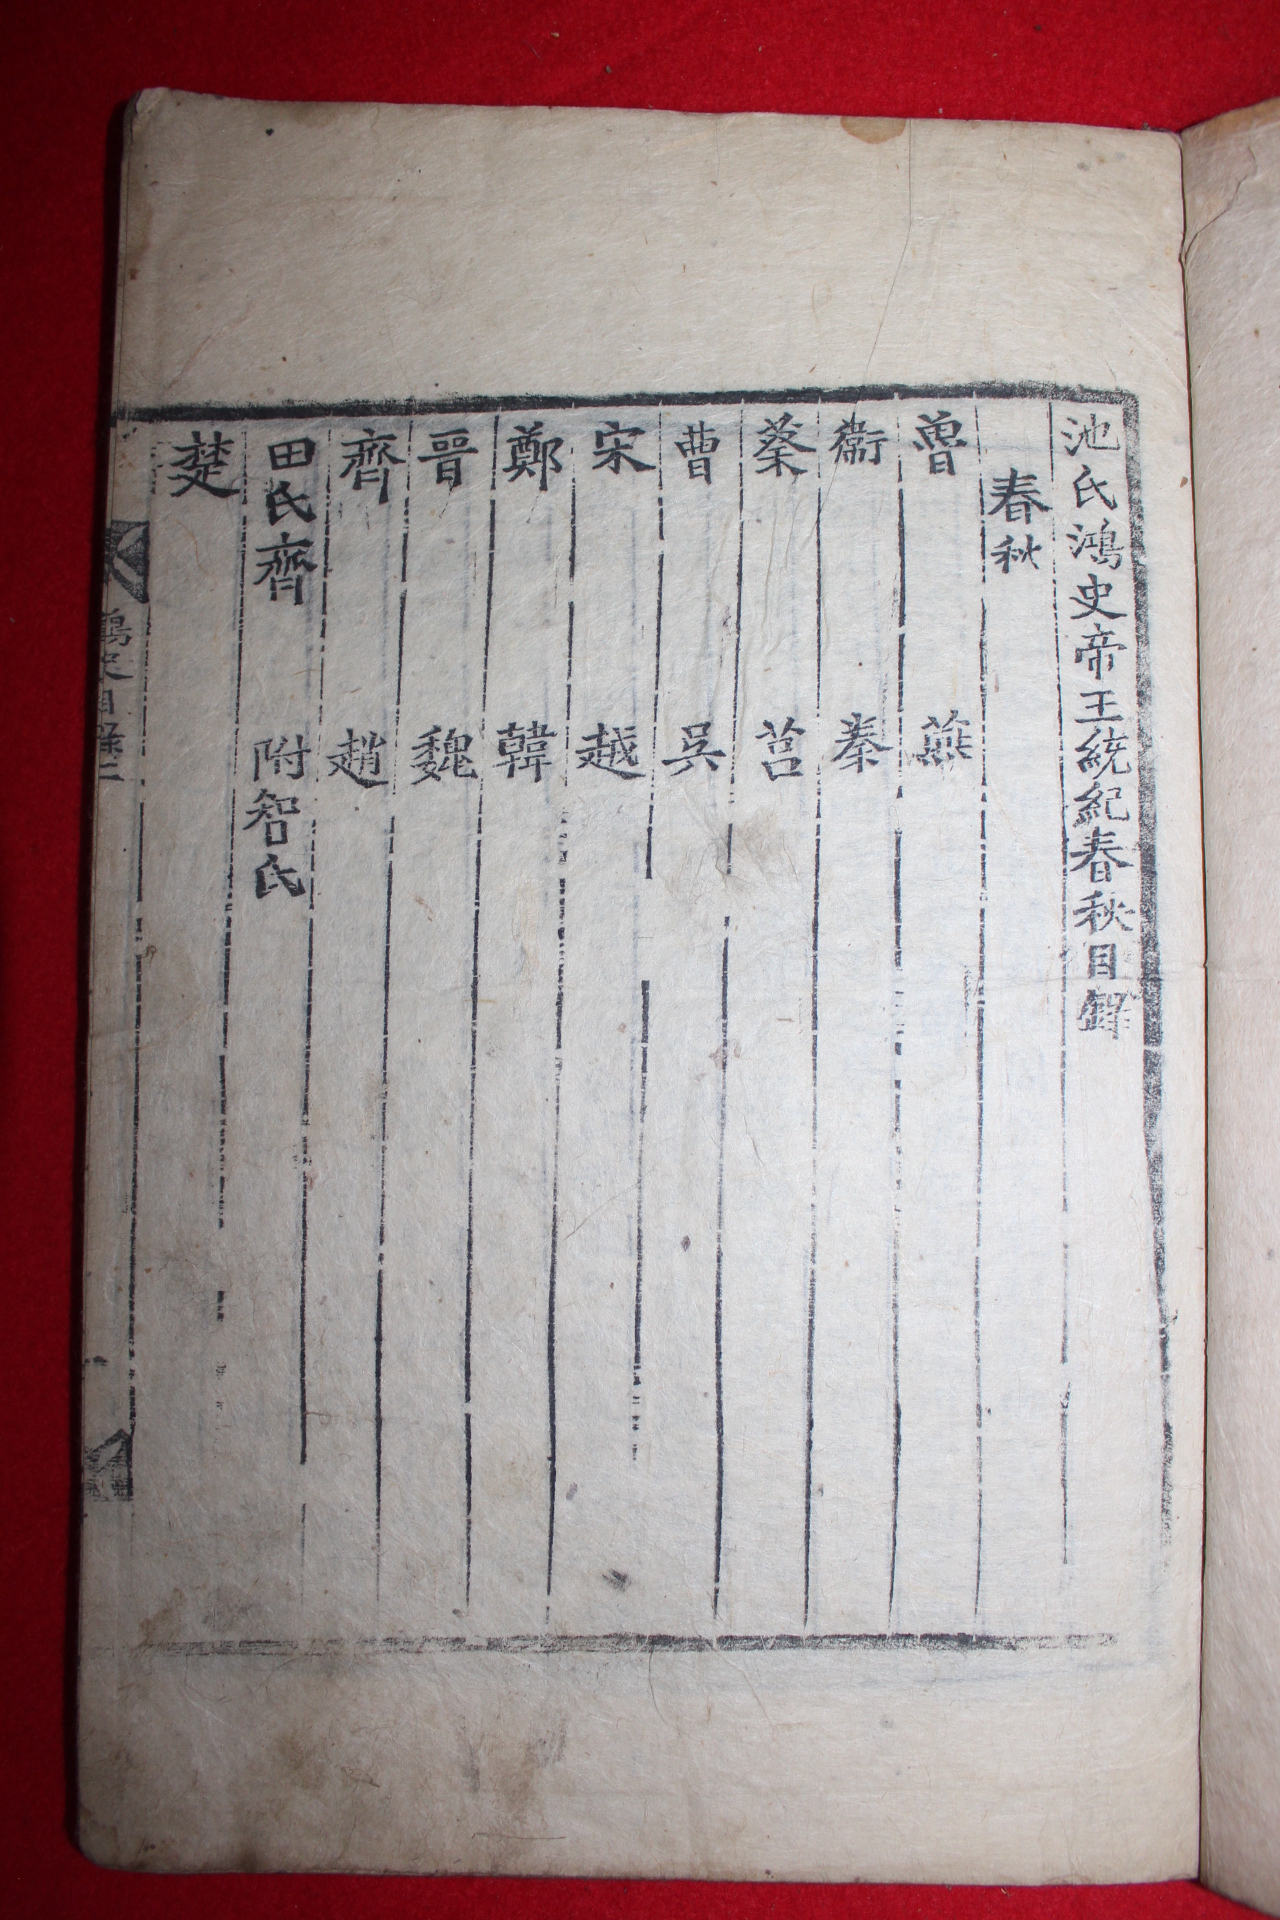 池氏鴻史帝王統紀春秋目錄
春秋
魯 燕
衛 秦
蔡 莒
曹 吳
宋 越
鄭 韓
晉 魏
齊 趙
田氏齊 附智氏
楚
鴻史目錄二